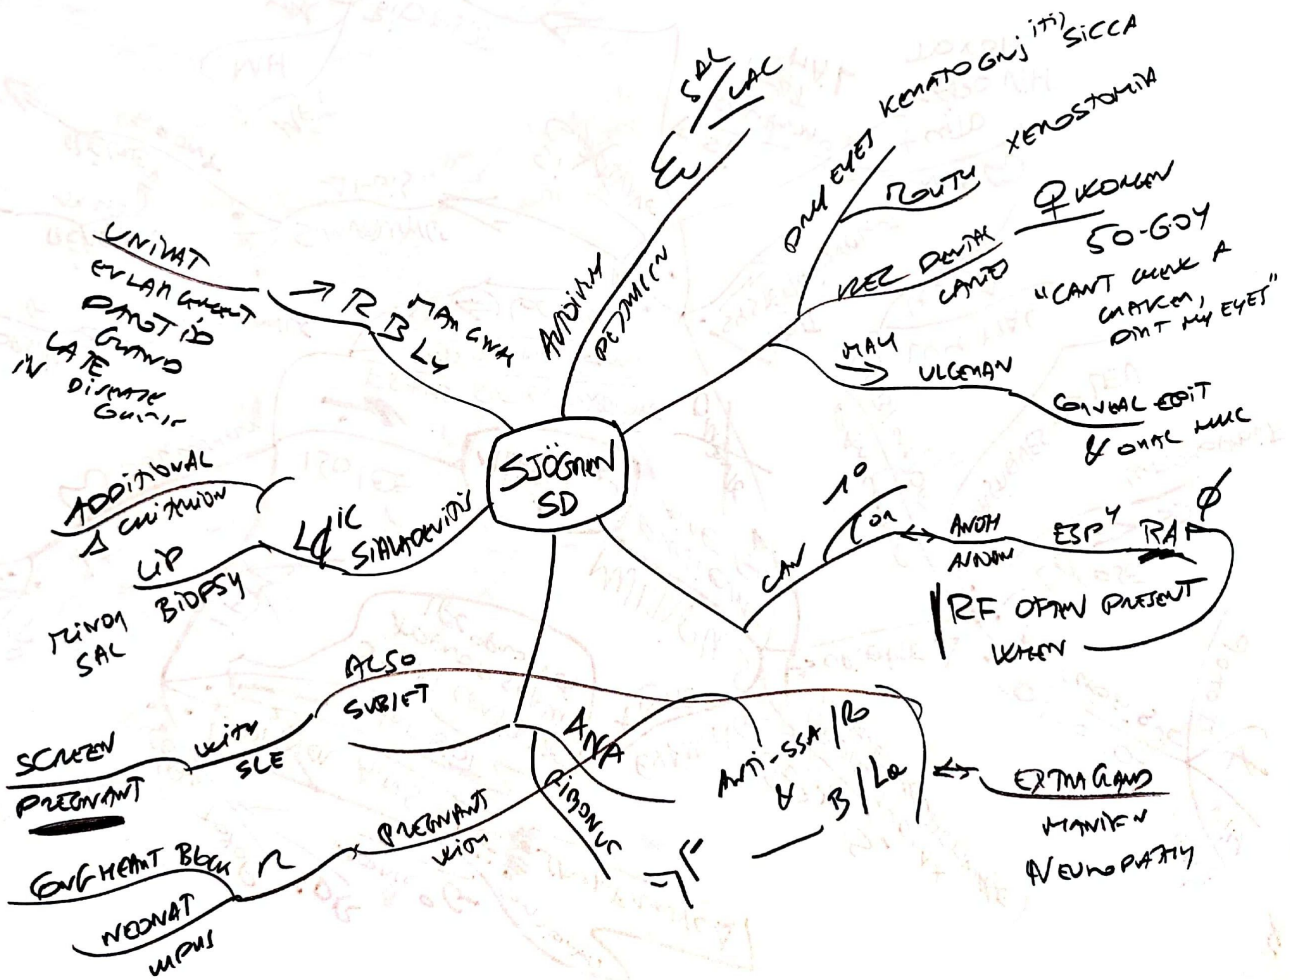 SJÖGREN
SD
SAL
/ LAC
AUTOIMM
DRY EYES
KERATO CONJ itis SICCA
MOUTH
XEROSTOMIA
DENTAL
CARIES
♀ WOMEN
50-60Y
"CANT CHEW A
CRACKER,
DIRT MY EYES"
MAY
ULCERAN
CORNEAL EPIT
& ORAL MUC
CAN
1°
OR
ESPY RAF Ø
RF OFTEN PRESENT
WHEN
ANA
RIBONUC
ANTI-SSA / RO
& B / La
EXTRAGLAND
MANIFN
NEUROPATHY
ALSO
SUBSET
WITH
SLE
SCREEN
PREGNANT
PREGNANT
WITH
R
CONG HEART BLOCK
NEONAT
LUPUS
SIALADENITIS
LIP
BIOPSY
MINOR
SAL
ADDITIONAL
Δ CRITERION
→ R B Ly
UNILAT
ENLARGMENT
PAROTID
GLAND
LATE
IN DISEASE